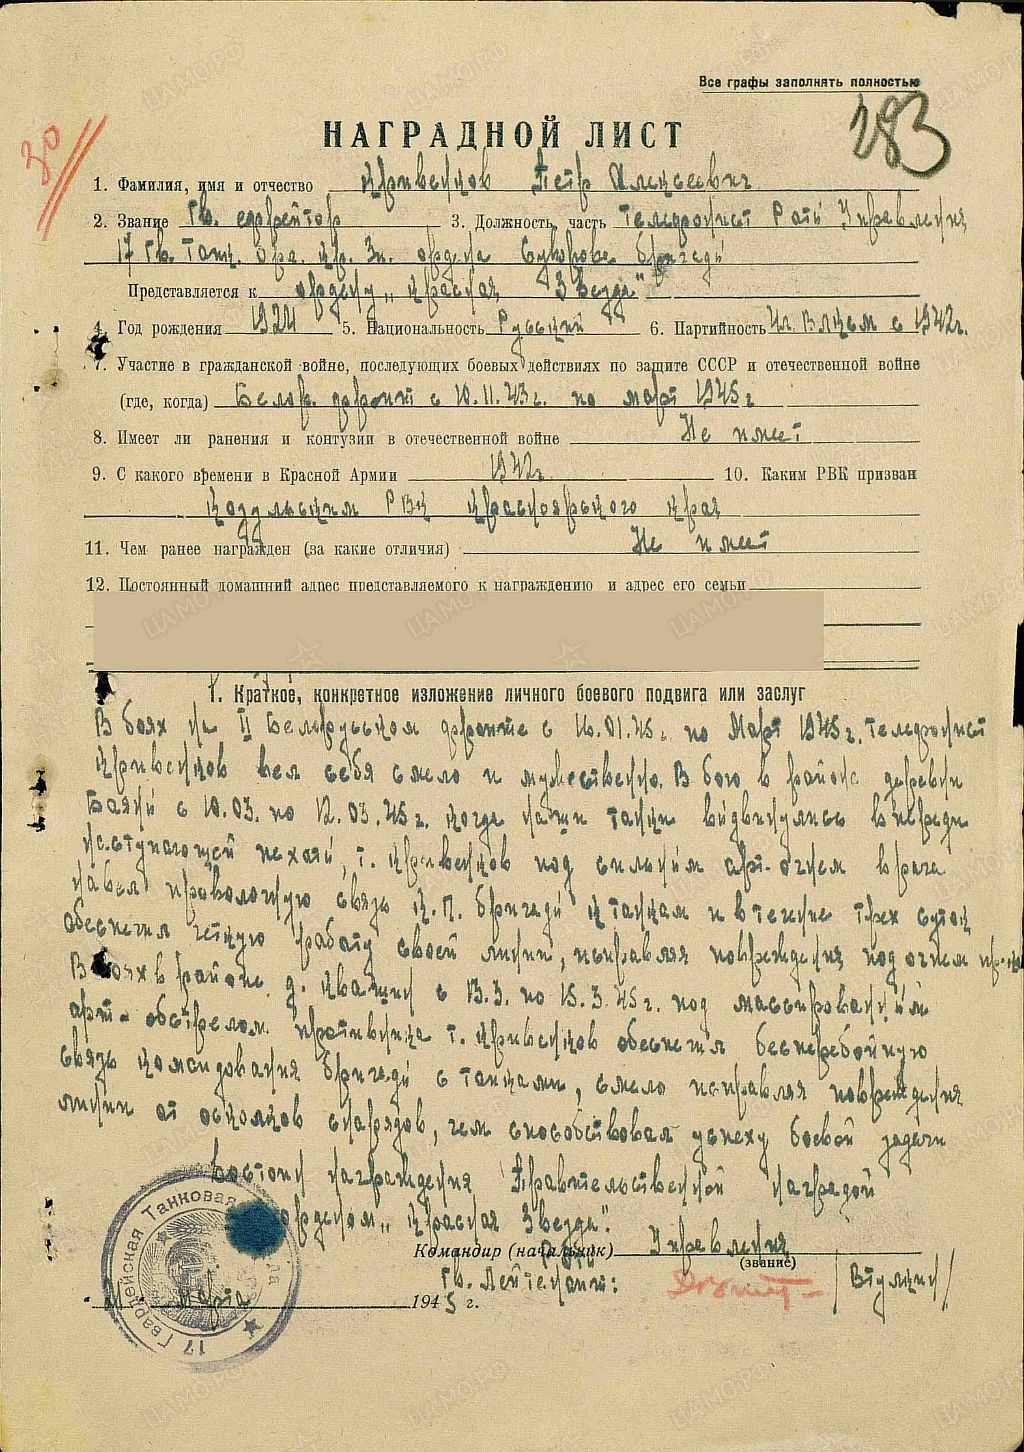 Все графы заполнять полностью
283
30
НАГРАДНОЙ ЛИСТ
1. Фамилия, имя и отчество Кривенков Петр Алексеевич
2. Звание Гв. ефрейтор 3. Должность, часть Телефонист Роты Управления
17 Гв. Танк. Орд. Кр. Зн. ордена Суворова бригады
Представляется к ордену „Красная Звезда"
4. Год рождения 1924 5. Национальность Русский 6. Партийность Чл. ВЛКСМ с 1942г.
7. Участие в гражданской войне, последующих боевых действиях по защите СССР и отечественной войне
(где, когда) Белор. фронт с 10.11.43г. по март 1945г
8. Имеет ли ранения и контузии в отечественной войне Не имеет
9. С какого времени в Красной Армии 1942г. 10. Каким РВК призван
Козульским РВК Красноярского края
11. Чем ранее награжден (за какие отличия) Не имеет
12. Постоянный домашний адрес представляемого к награждению и адрес его семьи
1. Краткое, конкретное изложение личного боевого подвига или заслуг
В боях на II Белорусском фронте с 16.01.45г. по Март 1945г. телефонист
Кривенков вел себя смело и мужественно. В бою в районе деревни
с 10.03. по 12.03.45г. когда наши танки выдвинулись впереди
наступающей пехоты, т. Кривенков под сильным арт-огнем врага
навел проволочную связь К.П. бригады к танкам и в течение трех суток
обеспечил четкую работу своей линии, исправляя повреждения под огнем
В боях в районе д. с 13.3. по 15.3.45г. под массированным
арт-обстрелом противника т. Кривенков обеспечил бесперебойную
связь командования бригады с танками, смело исправляя повреждения
линии от осколков снарядов, чем способствовал успеху боевой задачи
Достоин награждения Правительственной наградой
орденом „Красная Звезда".
Командир (начальник) Роты Управления
(звание)
Гв. Лейтенант: /Втулкин/
марта 1945 г.
17 Гвардейская Танковая